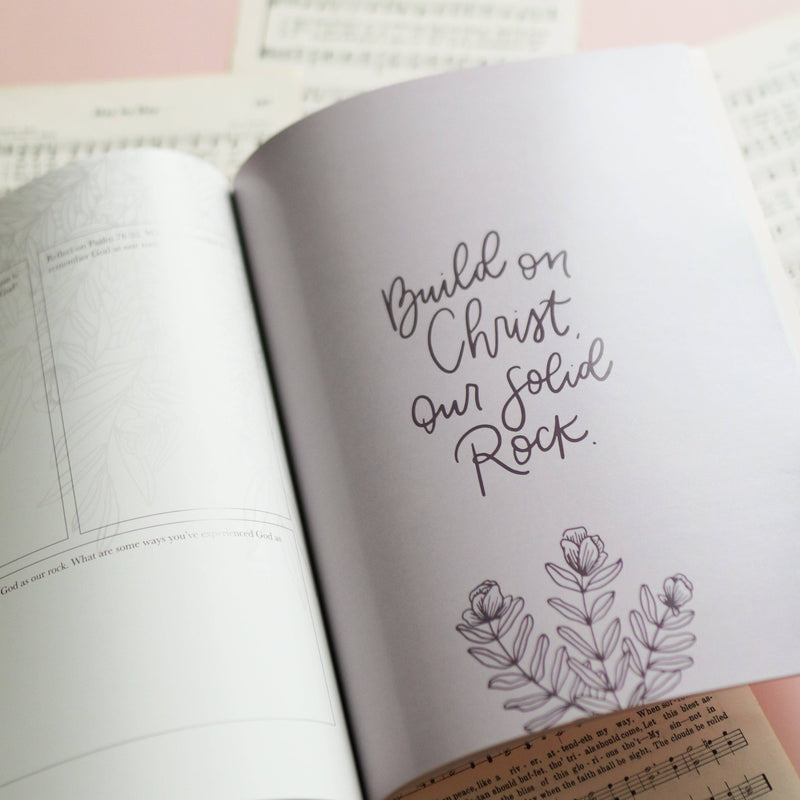 Reflect on Psalm
remember God as our
God as our rock. What are some ways you've experienced God as
Build on
Christ,
our Solid
Rock.
peace, like a riv - er, at - tend - eth my way, When
tan should buf - fet, tho' tri - als should come, Let this blest as-
the bliss of this glo - ri - ous tho't—My sin—not in
when the faith shall be sight, The clouds be rolled